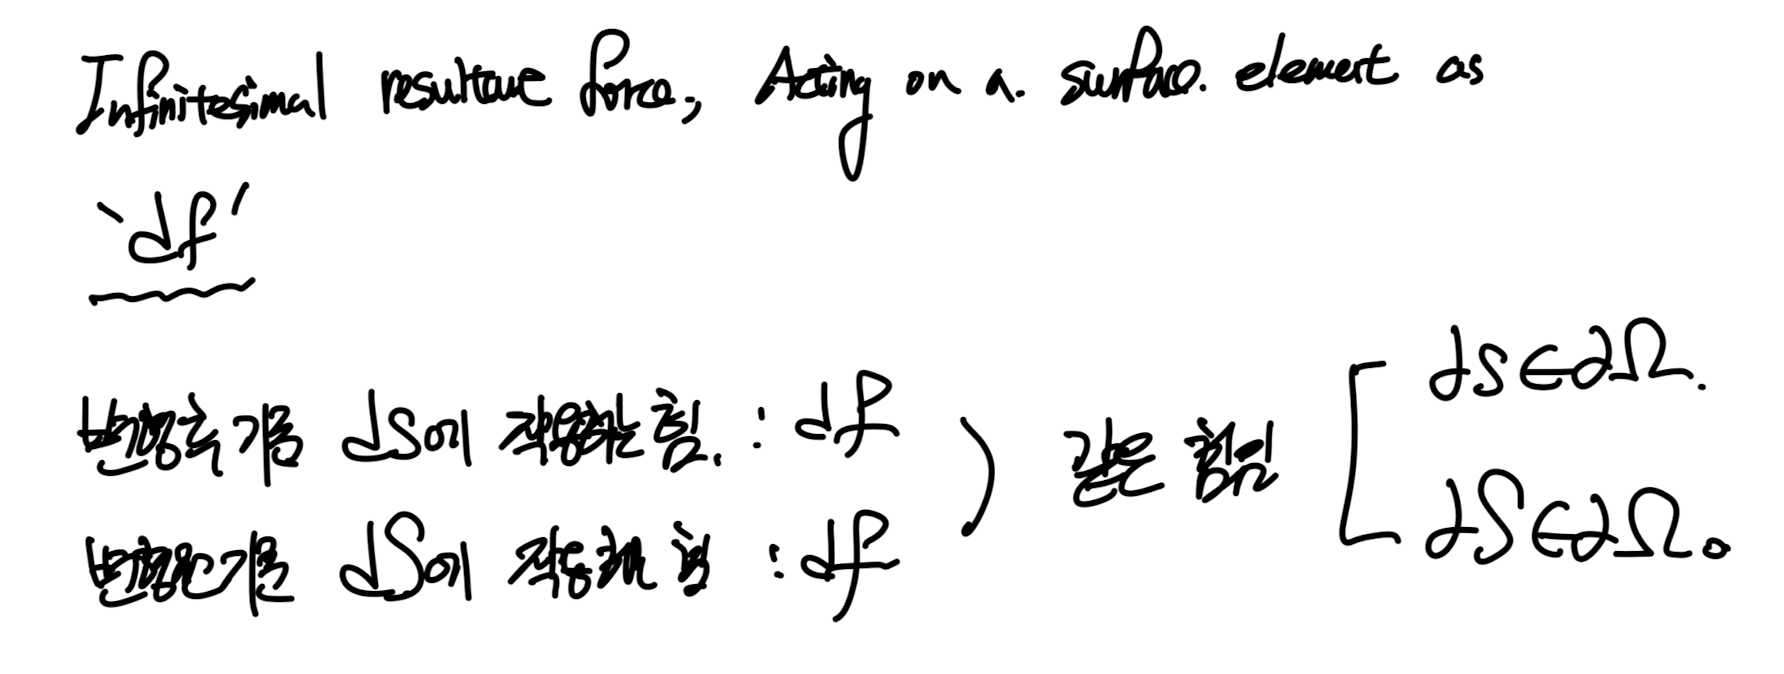 Infinitesimal resultant force, Acting on a surface element as
'df'
변형후 기준 ds에 작용하는 힘. : df
변형전 기준 dS에 작용하는 힘 : df
같은 힘임
ds∈∂Ω.
dS∈∂Ω₀